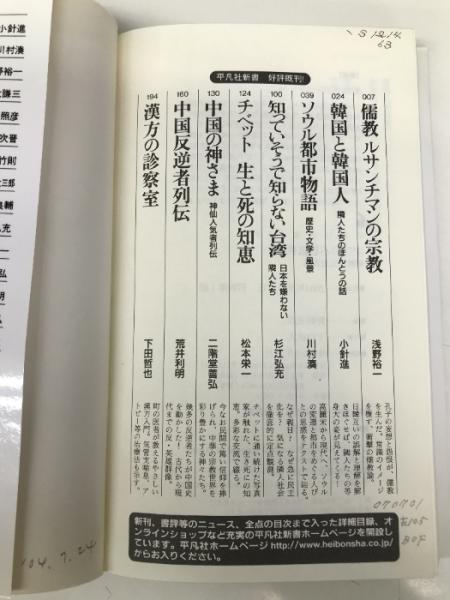 平凡社新書 好評既刊!
007
儒教 ルサンチマンの宗教
浅野裕一
孔子の妄想と怨恨が、儒教を生んだ。常識のイメージを覆す、衝撃の儒教論。
024
韓国と韓国人
隣人たちのほんとうの話
小針進
039
ソウル都市物語
歴史・文学・風景
川村湊
100
知っていそうで知らない台湾
日本を嫌わない隣人たち
杉江弘充
124
チベット 生と死の知恵
松本栄一
130
中国の神さま
神仙人気者列伝
二階堂善弘
160
中国反逆者列伝
荒井利明
194
漢方の診察室
下田哲也
新刊、書評等のニュース、全点の目次まで入った詳細目録、オ
ンラインショップなど充実の平凡社新書ホームページを開設し
ています。平凡社ホームページ http://www.heibonsha.co.jp/
からお入りください。
小針進
川村湊
裕一
謙三
照彦
次晋
竹則
三郎
輔
充
弘
明
弘
070701
104.7.24